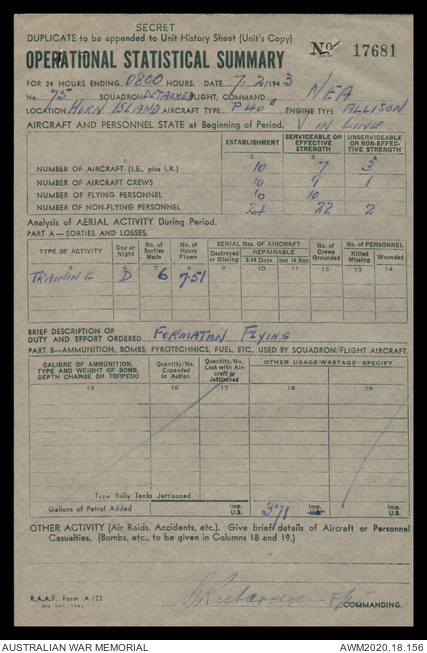 SECRET
DUPLICATE to be appended to Unit History Sheet (Unit's Copy)
OPERATIONAL STATISTICAL SUMMARY No 17681
FOR 24 HOURS ENDING 0800 HOURS. DATE 7.2.1943
No. 75 SQUADRON DETACHED FLIGHT, COMMAND NEA
LOCATION HORN ISLAND AIRCRAFT TYPE P40E ENGINE TYPE ALLISON
V IN LINE
AIRCRAFT AND PERSONNEL STATE at Beginning of Period.
ESTABLISHMENT SERVICEABLE OR EFFECTIVE STRENGTH UNSERVICEABLE OR NON-EFFECTIVE STRENGTH
NUMBER OF AIRCRAFT (I.E., plus I.R.) 10 7 3
NUMBER OF AIRCRAFT CREWS 10 9 1
NUMBER OF FLYING PERSONNEL 10 10
NUMBER OF NON-FLYING PERSONNEL 24 22 2
Analysis of AERIAL ACTIVITY During Period.
PART A—SORTIES AND LOSSES.
TYPE OF ACTIVITY Day or Night No. of Sorties Made No. of Hours Flown SERIAL Nos. OF AIRCRAFT Destroyed or Missing REPAIRABLE 5-14 Days Over 14 Days No. of Crews Grounded No. of PERSONNEL Killed Missing Wounded
TRAINING D 6 7.51
BRIEF DESCRIPTION OF
DUTY AND EFFORT ORDERED FORMATION FLYING
PART B—AMMUNITION, BOMBS, PYROTECHNICS, FUEL, ETC., USED BY SQUADRON/FLIGHT AIRCRAFT.
CALIBRE OF AMMUNITION, TYPE AND WEIGHT OF BOMB, DEPTH CHARGE OR TORPEDO Quantity/No. Expended in Action Quantity/No. Lost with Aircraft or Jettisoned OTHER USAGE/WASTAGE—SPECIFY
15 16 17 18 19
Type Belly Tanks Jettisoned
Gallons of Petrol Added Imp. U.S. 371 Imp. U.S. Imp. U.S.
OTHER ACTIVITY (Air Raids, Accidents, etc.). Give brief details of Aircraft or Personnel
Casualties. (Bombs, etc., to be given in Columns 18 and 19.)
COMMANDING.
R.A.A.F. Form A 122
AUSTRALIAN WAR MEMORIAL AWM2020.18.156